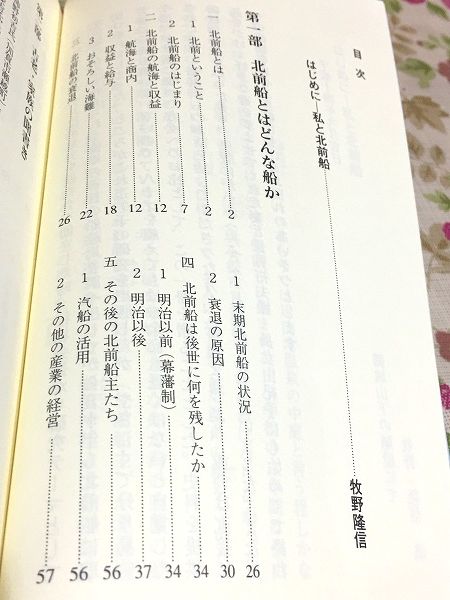 目次
はじめに―私と北前船……牧野隆信
第一部 北前船とはどんな船か
一 北前船とは……2
1 北前ということ……2
2 北前船のはじまり……7
二 北前船の航海と収益……12
1 航海と商内……12
2 収益と給与……18
3 おそろしい海難……22
三 北前船の衰退……26
1 末期北前船の状況……26
2 衰退の原因……30
四 北前船は後世に何を残したか……34
1 明治以前（幕藩制）……34
2 明治以後……37
五 その後の北前船主たち……56
1 汽船の活用……56
2 その他の産業の経営……57